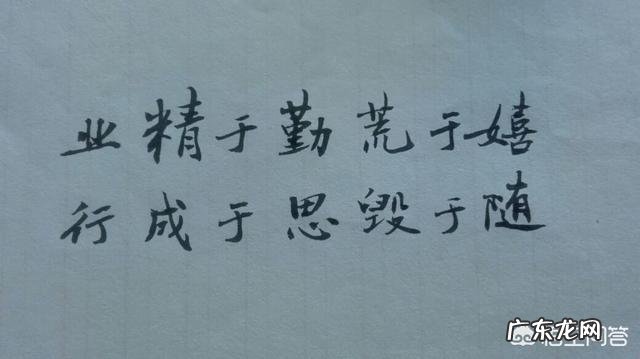 业精于勤荒于嬉
行成于思毁于随
广东龙网